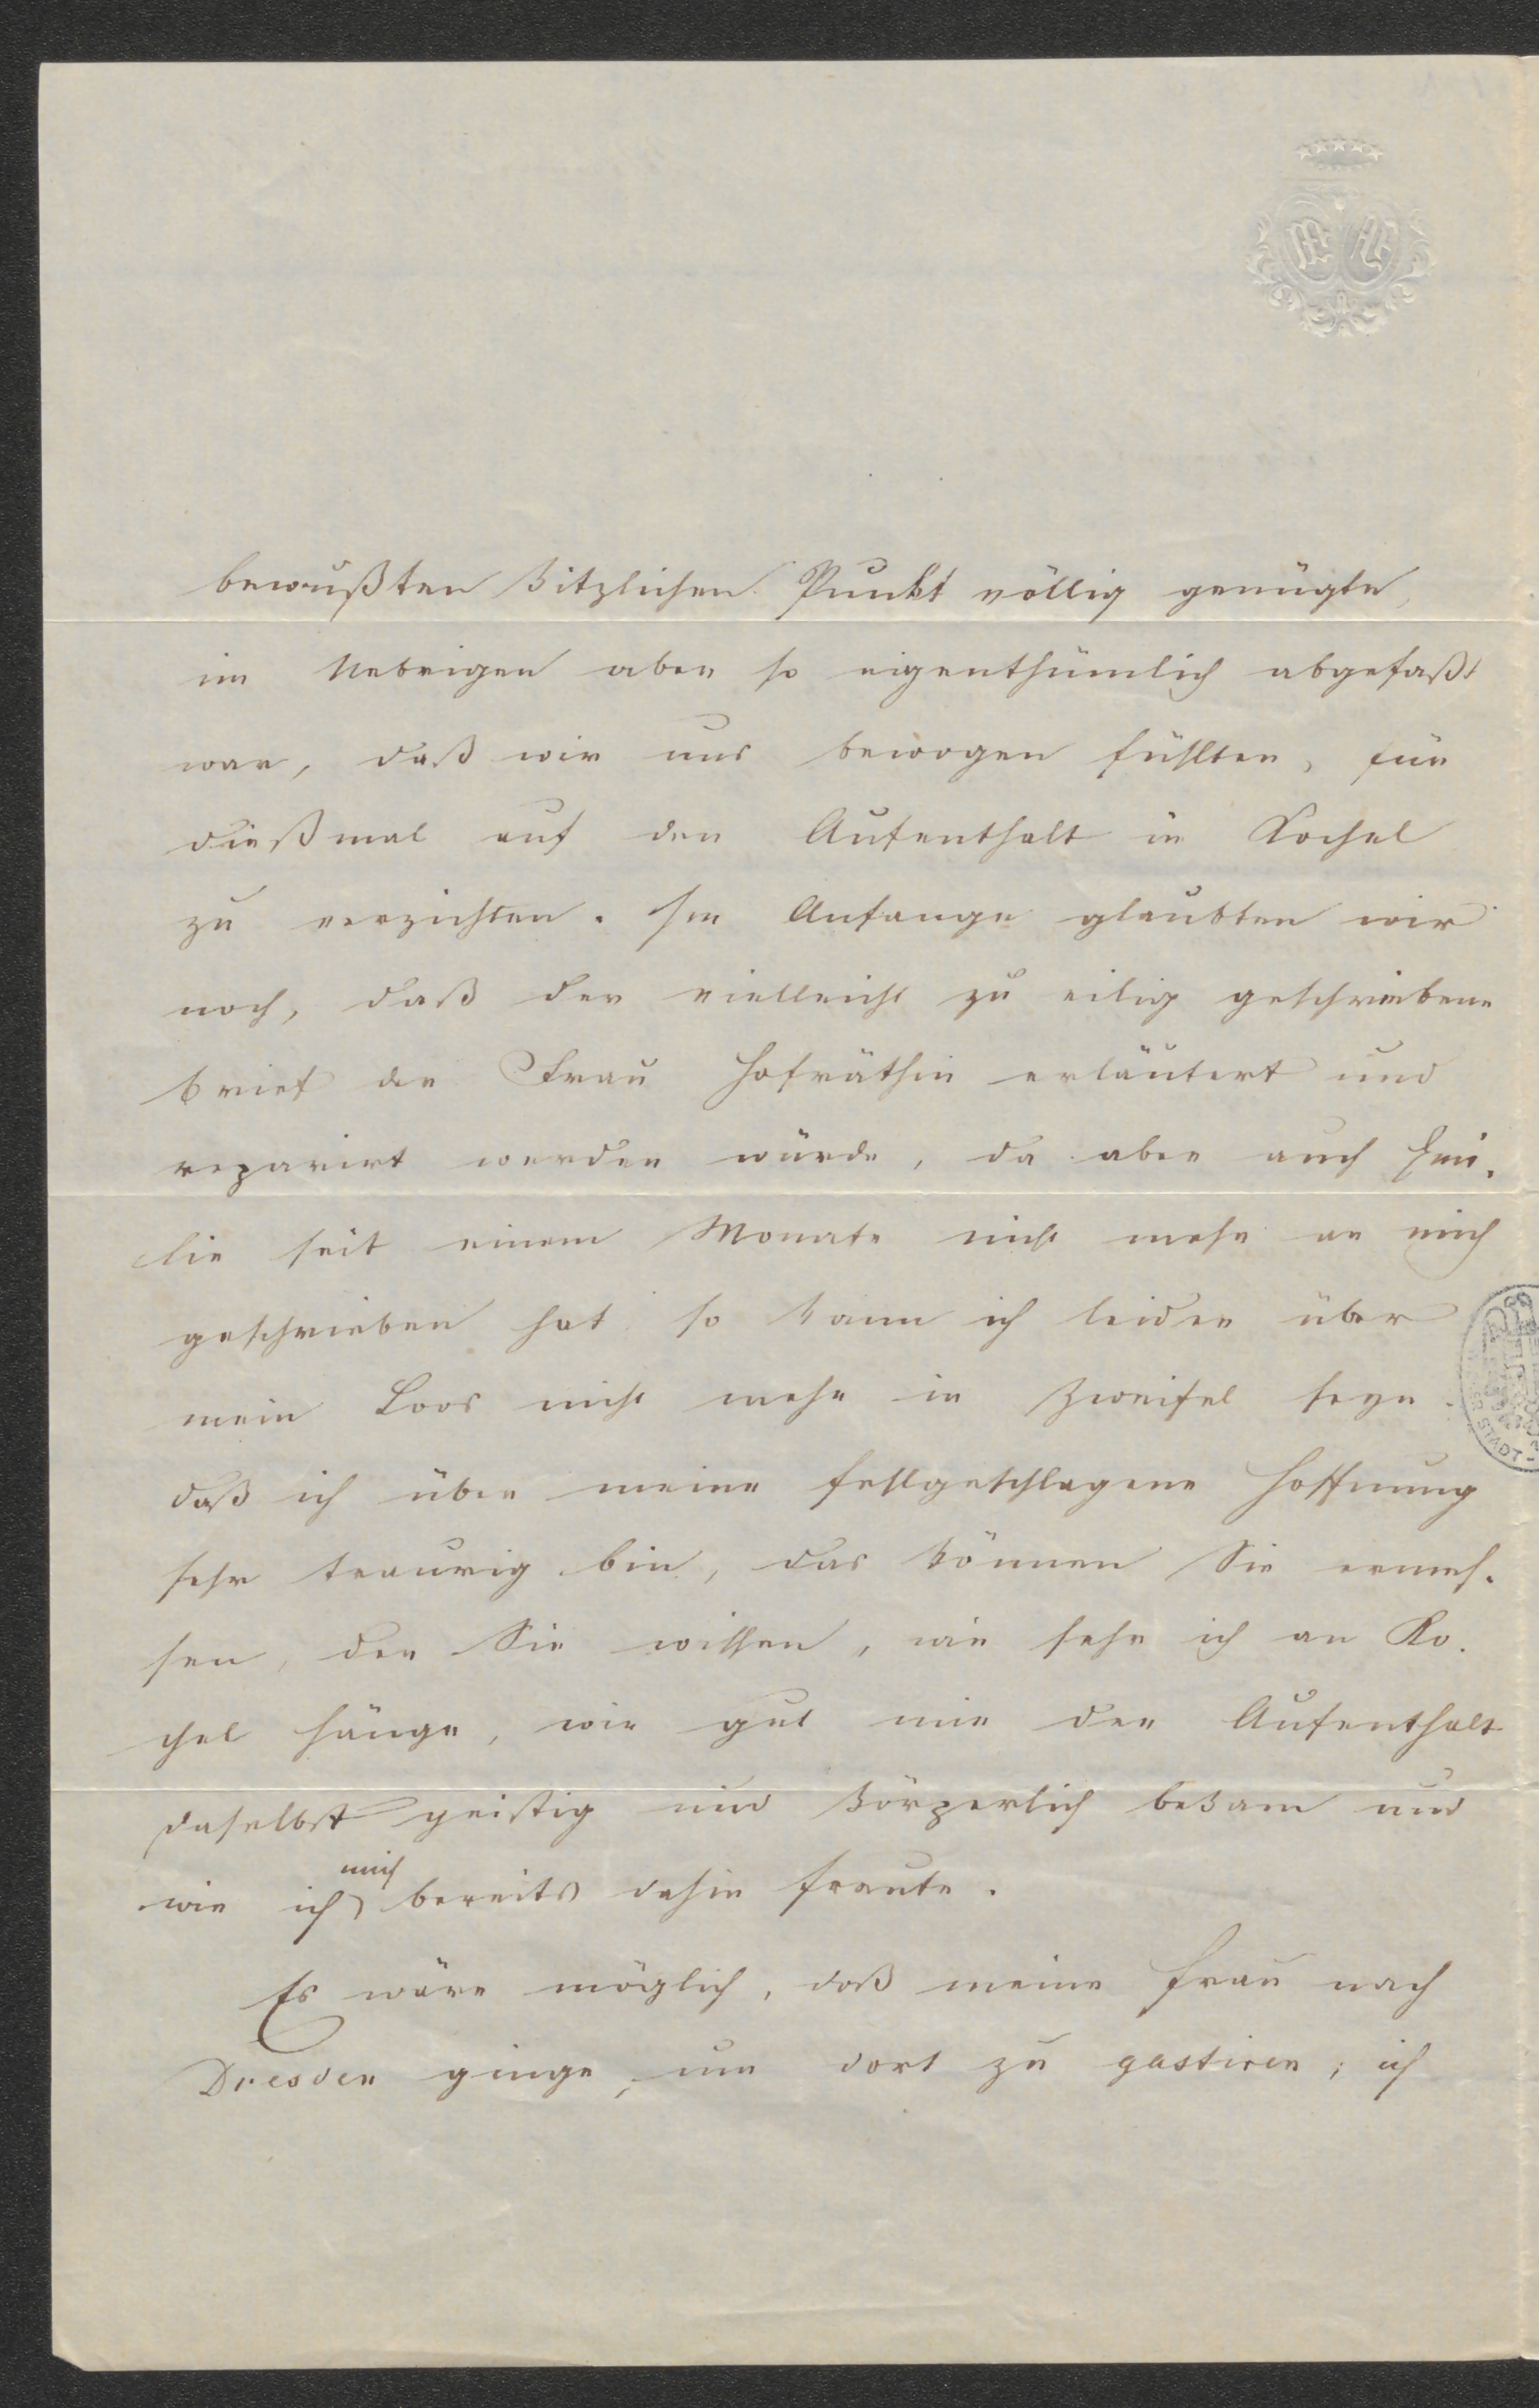 bewußten kitzlichen Punkt völlig genügte,
im Uebrigen aber so eigenthümlich abgefaßt
war, daß wir uns bewogen fühlten, für
dießmal auf den Aufenthalt in Kochel
zu verzichten. Im Anfange glaubten wir
noch, daß der vielleicht zu eilig geschriebene
Brief der Frau Hofräthin erläutert und
reparirt werden würde, da aber auch Emi-
lie seit einem Monate nicht mehr an mich
geschrieben hat so kann ich leider über
mein Loos nicht mehr in Zweifel seyn.
daß ich über meine fehlgeschlagene Hoffnung
sehr traurig bin, das können Sie ermes-
sen, der Sie wissen, wie sehr ich an Ko-
chel hänge, wie gut mir der Aufenthalt
daselbst geistig und körperlich bekam und
wie ich mich bereits dahin freute.
Es wäre möglich, daß meine Frau nach
Dresden ginge, um dort zu gastiren; ich
STADT-